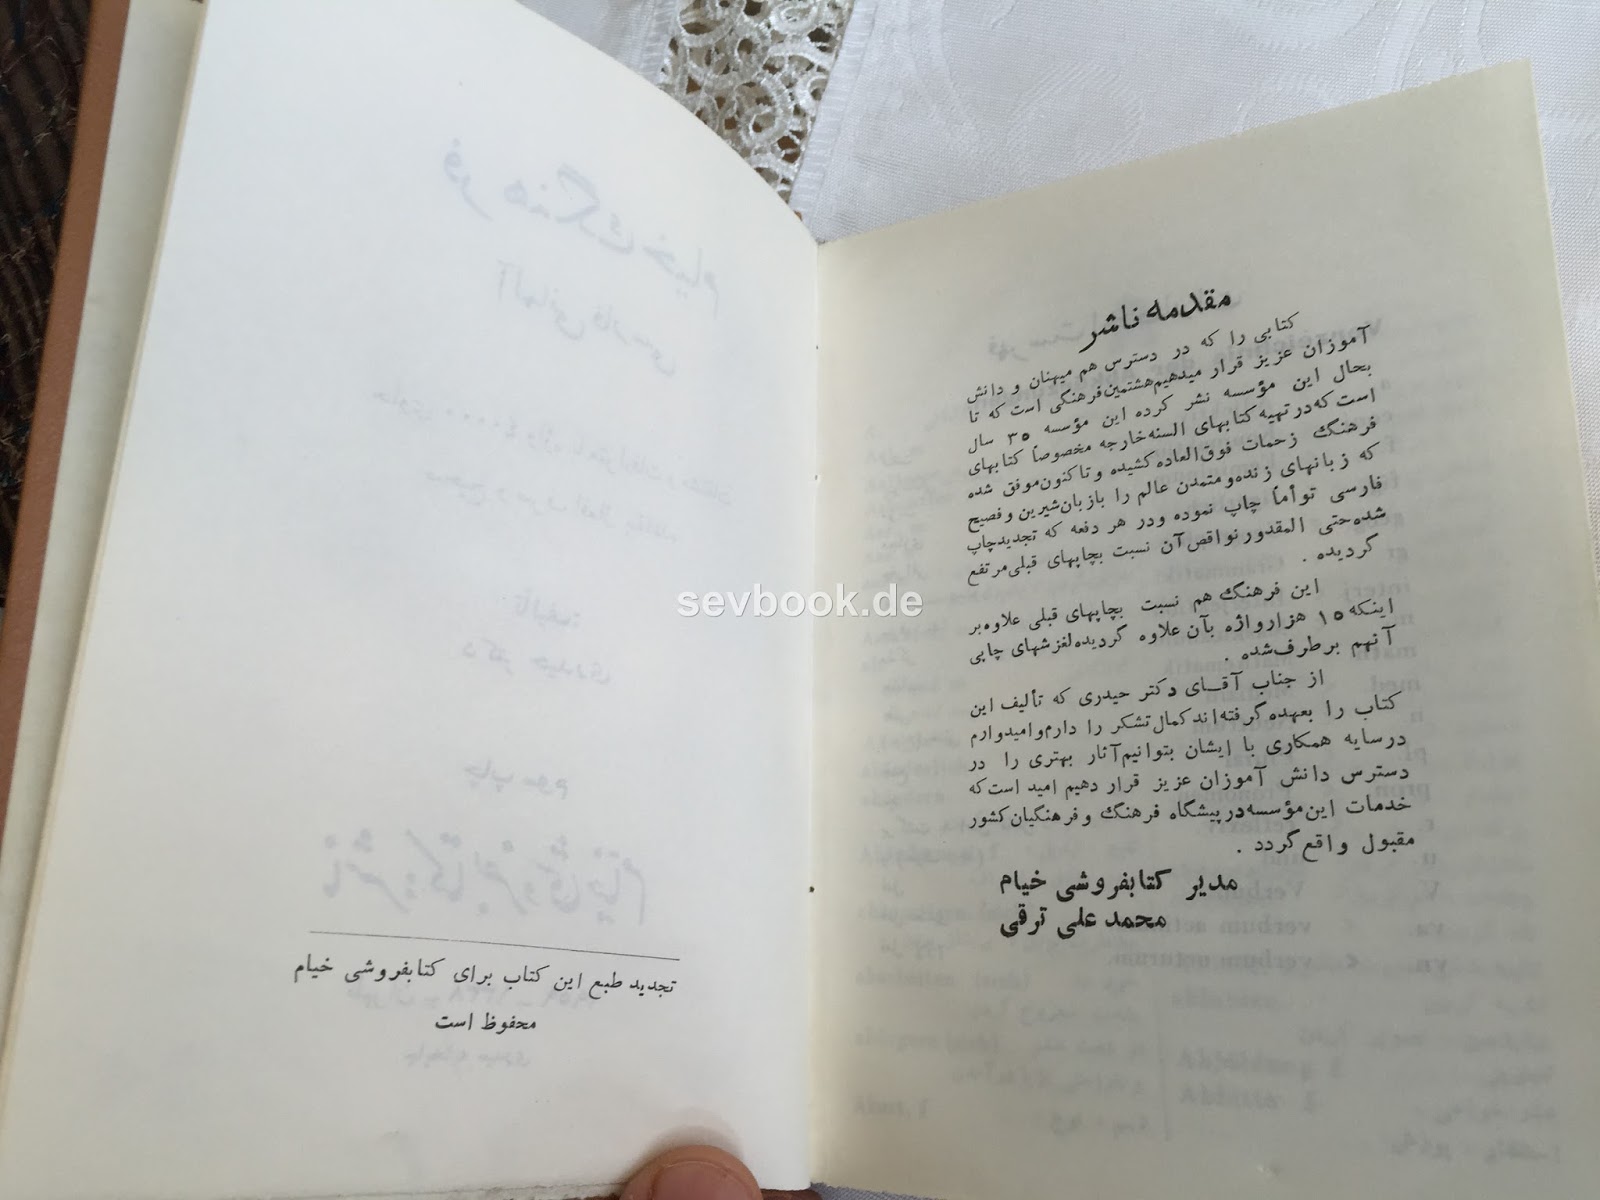 مقدمه ناشر
کتابی را که در دسترس هم میهنان و دانش
آموزان عزیز قرار میدهیم هشتمین فرهنگی است که تا
بحال این مؤسسه نشر کرده این مؤسسه ۳۵ سال
است که در تهیه کتابهای السنه خارجه مخصوصاً کتابهای
فرهنگ زحمات فوق‌العاده کشیده و تاکنون موفق شده
که زبانهای زنده و متمدن عالم را با زبان شیرین و فصیح
فارسی توأماً چاپ نموده و در هر دفعه که تجدید چاپ
شده حتی المقدور نواقص آن نسبت بچاپهای قبلی مرتفع
گردیده .
این فرهنگ هم نسبت بچاپهای قبلی علاوه بر
اینکه ۱۵ هزار واژه بآن علاوه گردیده لغزشهای چاپی
آنهم برطرف شده .
از جناب آقای دکتر حیدری که تألیف این
کتاب را بعهده گرفته‌اند کمال تشکر را دارم و امیدوارم
در سایه همکاری با ایشان بتوانیم آثار بهتری را در
دسترس دانش آموزان عزیز قرار دهیم امید است که
خدمات این مؤسسه در پیشگاه فرهنگ و فرهنگیان کشور
مقبول واقع گردد .
مدیر کتابفروشی خیام
محمد علی ترقی
تجدید طبع این کتاب برای کتابفروشی خیام
محفوظ است
sevbook.de